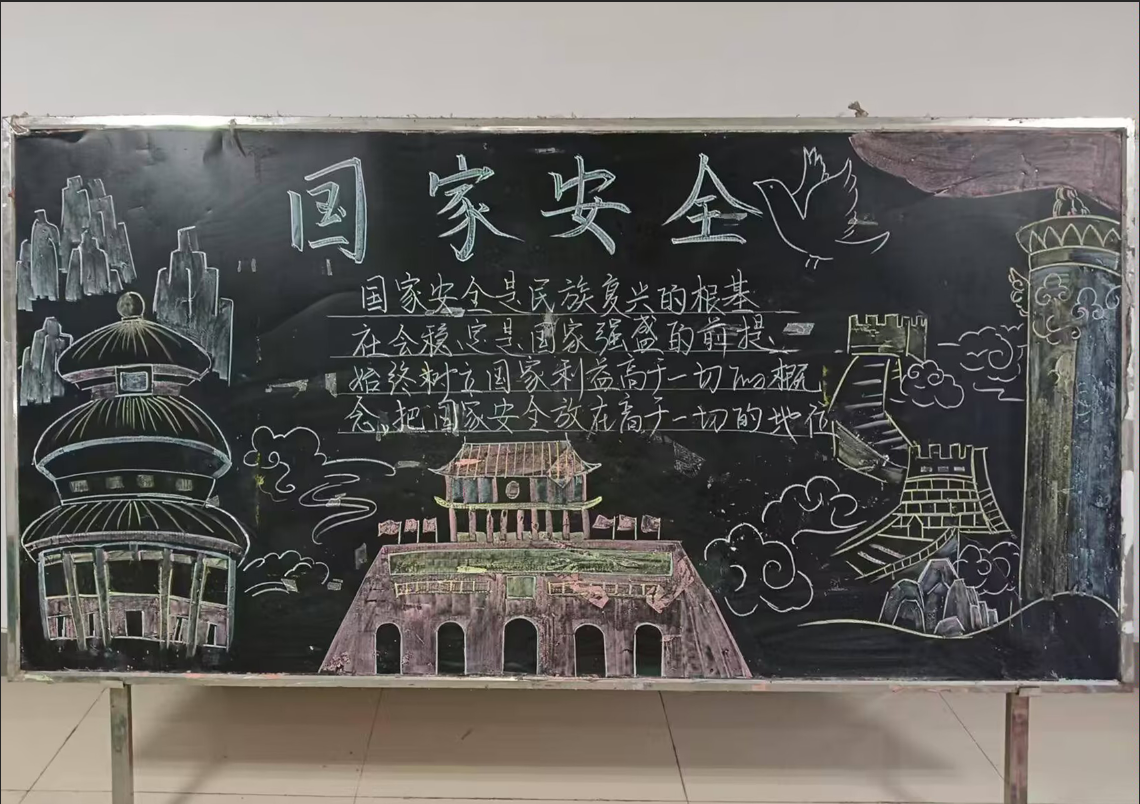 国家安全
国家安全是民族复兴的根基
社会稳定是国家强盛的前提、
始终树立国家利益高于一切的概
念,把国家安全放在高于一切的地位